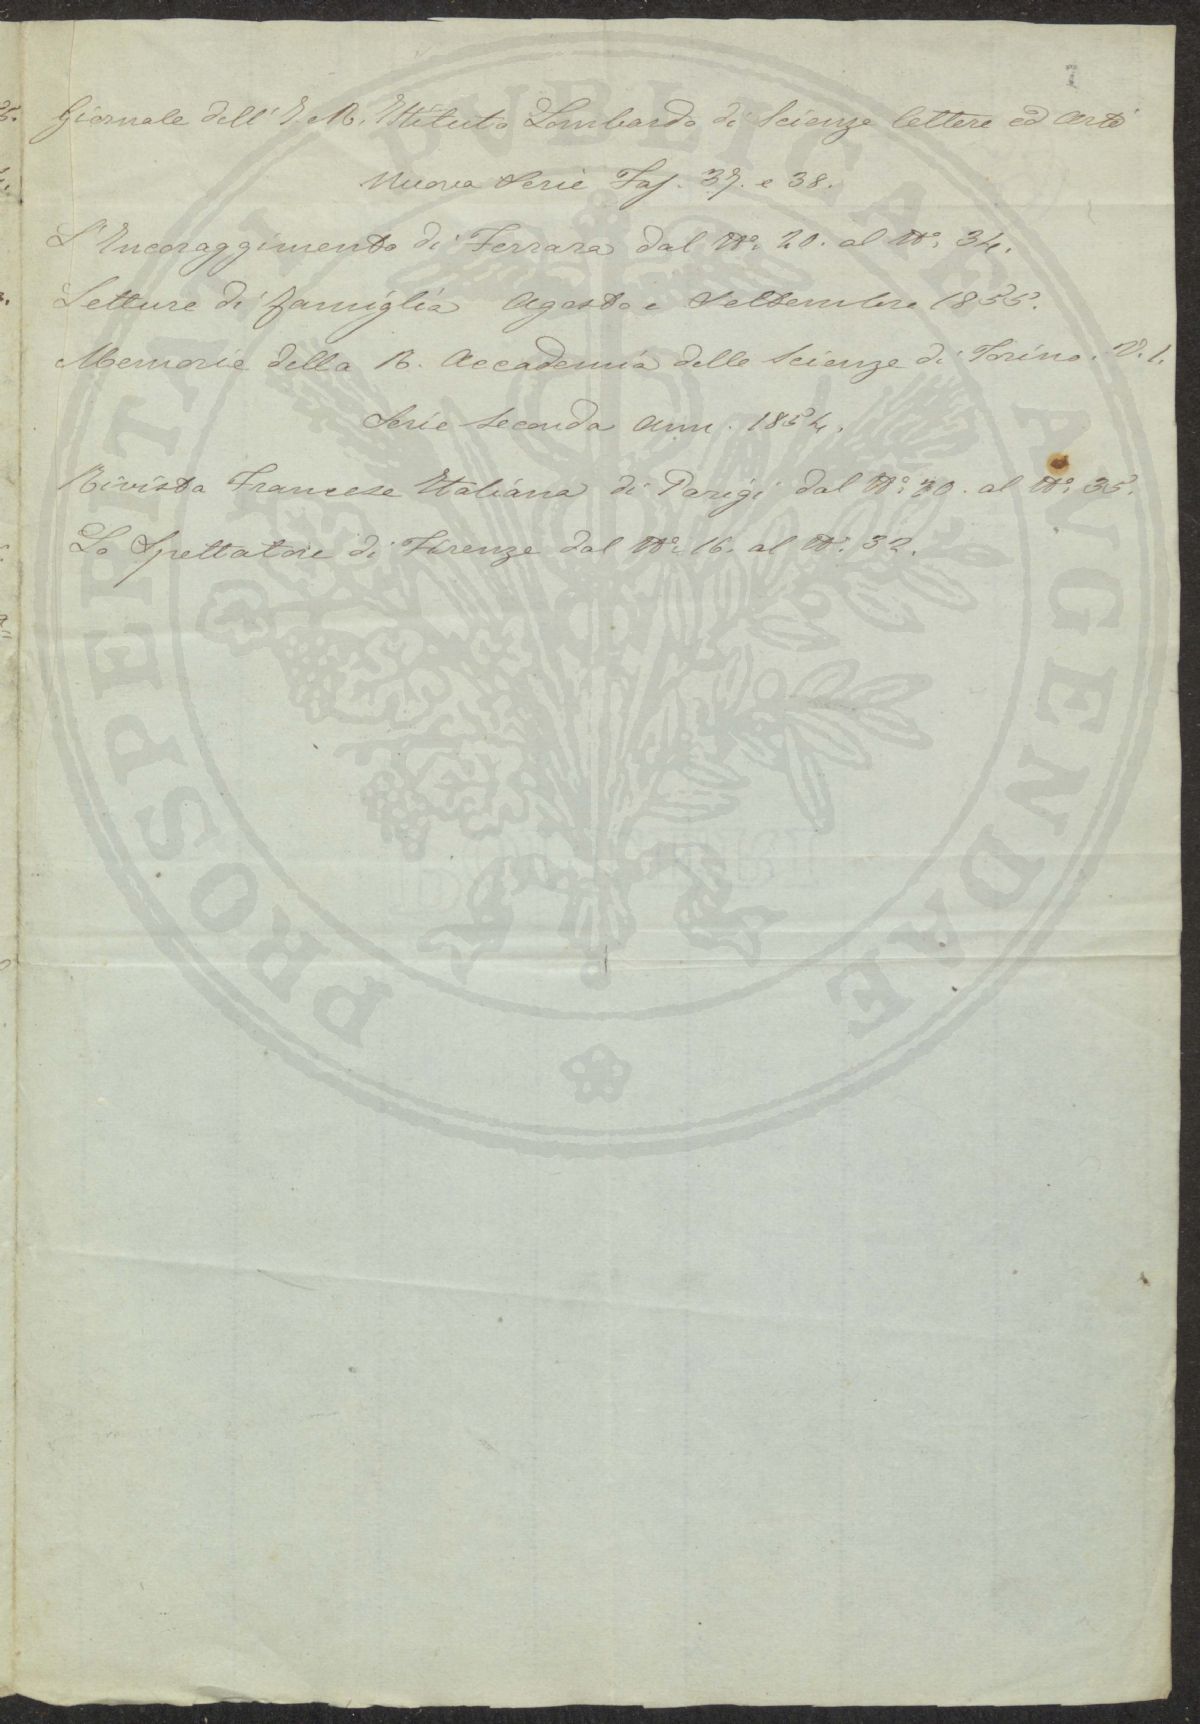 7
Giornale dell' I. R. Istituto Lombardo di Scienze lettere ed Arti
Nuova Serie Fas. 37. e 38.
L'Incoraggimento di Ferrara dal N.º 20. al N.º 34.
Letture di famiglia Agosto e Settembre 1855.
Memorie della R. Accademia delle Scienze di Torino. V. 1.
Serie Seconda Ann. 1854.
Rivista Francese Italiana di Parigi dal N.º 30. al N.º 35.
Lo Spettatore di Firenze dal N.º 16. al N.º 32.
PROSPERITATI PUBLICAE AVGENDAE